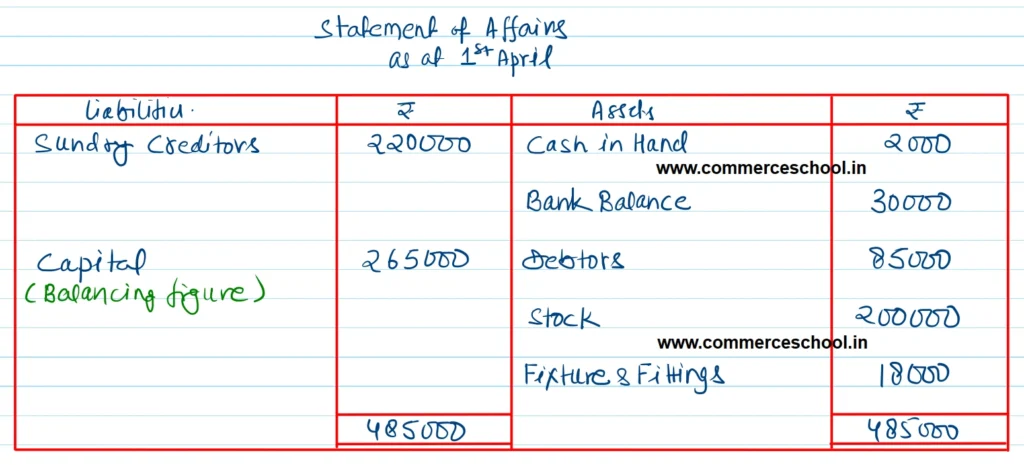 Statement of Affairs
as at 1st April
Liabilities. ₹ Assets ₹
Sundry Creditors 220000 Cash in Hand 2000
www.commerceschool.in
Bank Balance 30000
Capital 265000 Debtors 85000
(Balancing figure)
Stock 200000
www.commerceschool.in
Fixture & Fittings 18000
485000 485000